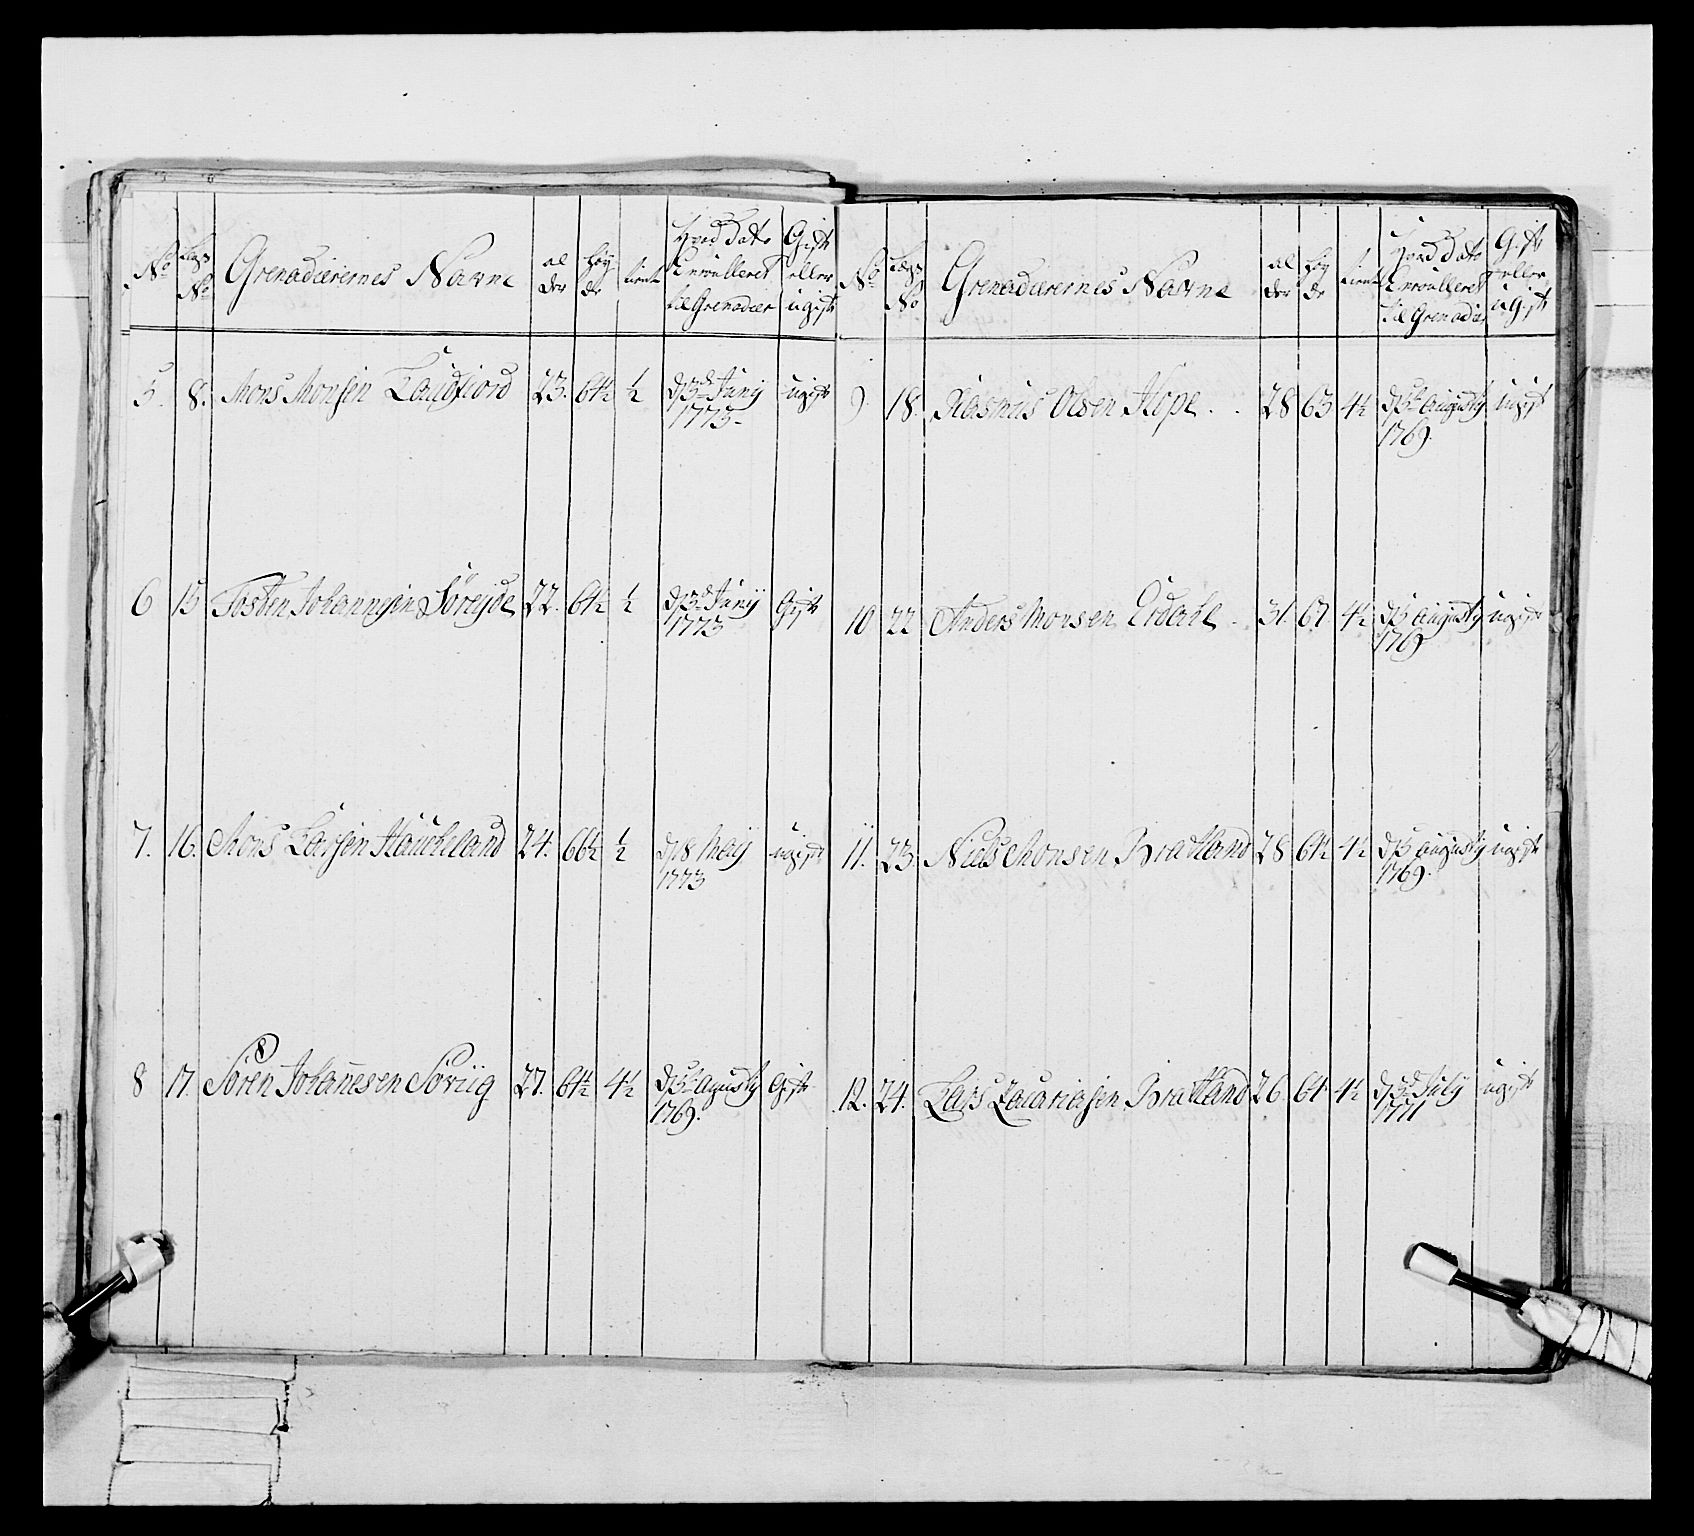 No Legs No Grenadierernes Navne al der Høy de tient Hvad Dato Enroulleret til Grenadier Gift eller ugift
5. 8. Mons Monsen 23. 64½ ½ d. 3de Junij 1773. ugift
6 15 Tosten Johannesen Søreide 22. 64½ ½ d. 3de Junij 1773 Gift
7. 16. Mons Larsen Hauckeland 24. 66½ ½ d. 18 Maij 1773 ugift
8 17. Søren Johannesen Søviig 27. 64½ 4½ d. 5te Agusty 1769. Gift
No Legs No Grenadierernes Navne al der Høy de tient Hvad Dato Enroulleret til Grenadier Gift eller ugift
9. 18. Rasmus Olsen Hope . . 28 63 4½ d. 5te Augusty 1769. ugift
10 22 Anders Monsen Erdahl . 31. 67 4½ d. 5 Augusty 1769 ugift
11. 23. Niels Monsen Bratland 28 64½ 4½ d. 5 Augusty 1769. ugift
12. 24. Lars Zacariasen Bratland 26. 64. 4½ d. 3de July 1771 ugift